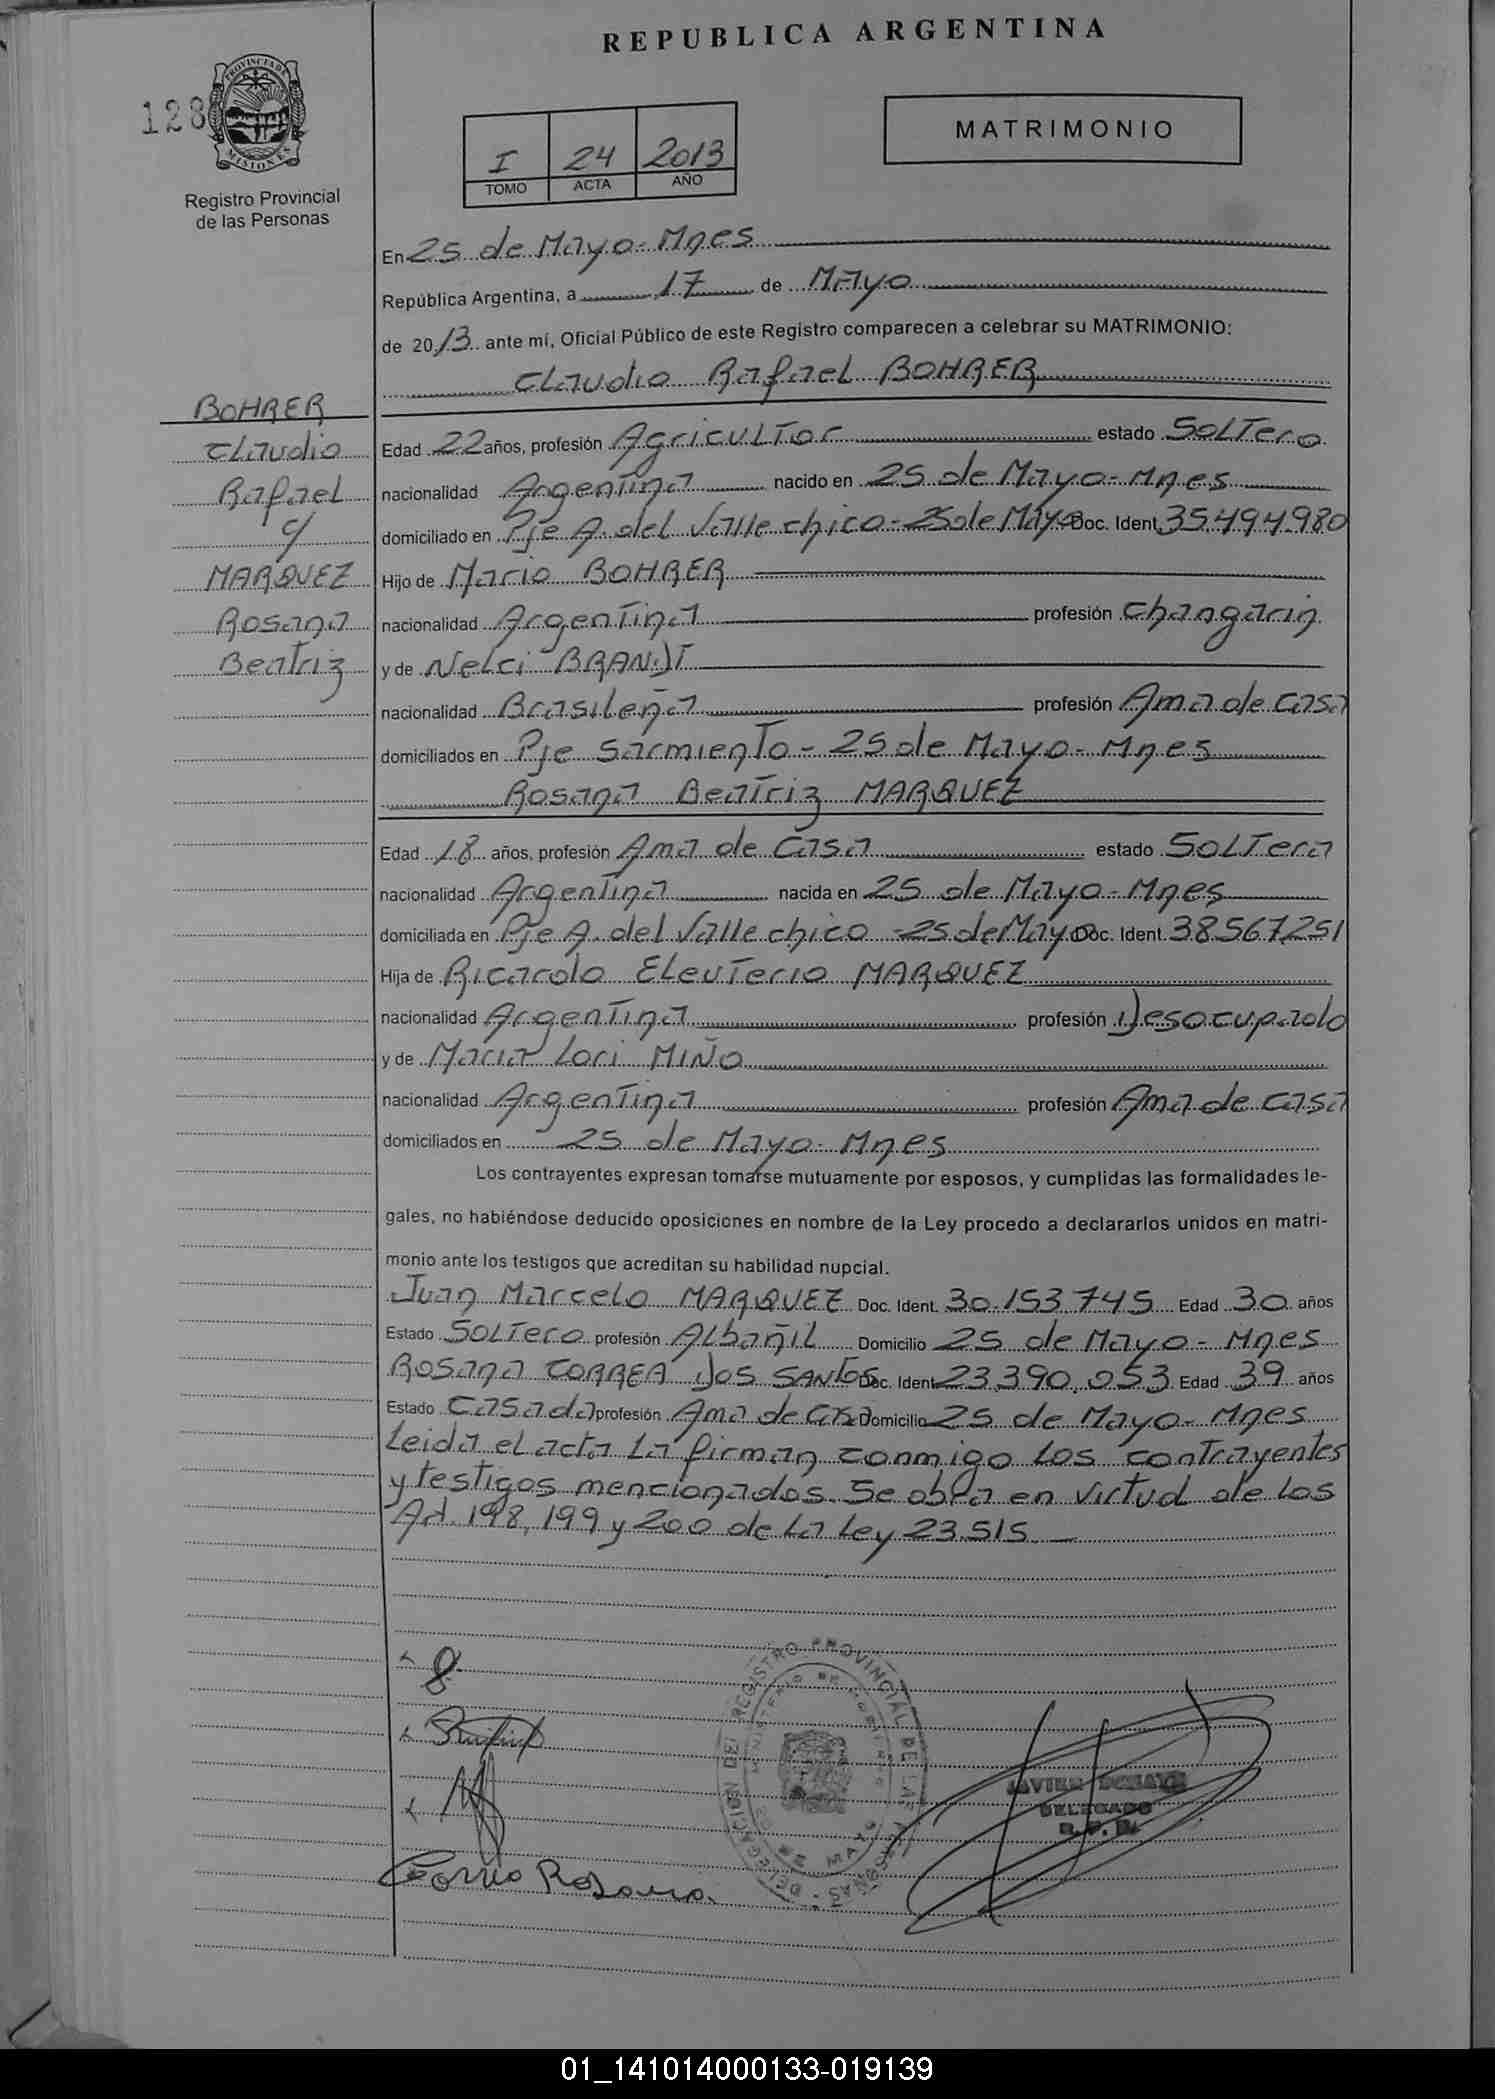 REPUBLICA ARGENTINA
128
PROVINCIA DE
MISIONES
Registro Provincial
de las Personas
I 24 2013
TOMO ACTA AÑO
MATRIMONIO
En 25 de Mayo - Mnes
República Argentina, a 17 de Mayo
de 2013 ante mí, Oficial Público de este Registro comparecen a celebrar su MATRIMONIO:
Claudio Rafael BOHRER
BOHRER
Claudio
Rafael
c/
MARQUEZ
Rosana
Beatriz
Edad 22 años, profesión Agricultor estado Soltero
nacionalidad Argentina nacido en 25 de Mayo - Mnes
domiciliado en Pje A. del Valle chico - 25 de Mayo Doc. Ident. 35.494.980
Hijo de Mario BOHRER
nacionalidad Argentina profesión Changarin
y de Nelci BRANDT
nacionalidad Brasileña profesión Ama de Casa
domiciliados en Pje Sarmiento - 25 de Mayo - Mnes
Rosana Beatriz MARQUEZ
Edad 18 años, profesión Ama de Casa estado Soltera
nacionalidad Argentina nacida en 25 de Mayo - Mnes
domiciliada en Pje A. del Valle chico - 25 de Mayo Doc. Ident. 38567251
Hija de Ricardo Eleuterio MARQUEZ
nacionalidad Argentina profesión Desocupado
y de Maria Lori MIÑO
nacionalidad Argentina profesión Ama de Casa
domiciliados en 25 de Mayo - Mnes
Los contrayentes expresan tomarse mutuamente por esposos, y cumplidas las formalidades le-
gales, no habiéndose deducido oposiciones en nombre de la Ley procedo a declararlos unidos en matri-
monio ante los testigos que acreditan su habilidad nupcial.
Juan Marcelo MARQUEZ Doc. Ident. 30.153.745 Edad 30 años
Estado Soltero profesión Albañil Domicilio 25 de Mayo - Mnes
Rosana CORREA DOS SANTOS Doc. Ident. 23.390.053 Edad 39 años
Estado Casada profesión Ama de Casa Domicilio 25 de Mayo - Mnes
Leida el acta La firman conmigo Los contrayentes
y testigos mencionados. Se obra en virtud de Los
Art. 198, 199 y 200 de La Ley 23.515
DELEGACION DEL REGISTRO PROVINCIAL DE LAS PERSONAS
MINISTERIO DE GOBIERNO
JAVIER
DELEGADO
Correa Rosana
01_141014000133-019139